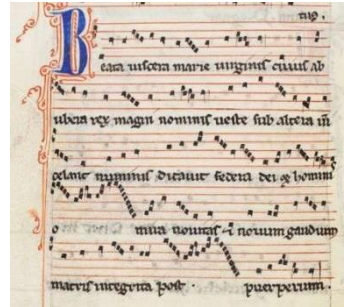 tus.
Beata viscera marie virginis cuius ab
ubera rex magni nominis veste sub altera
numinis dictavit federa dei & homini
o mira novitas & novum gaudium
matris integrita post puerperium.